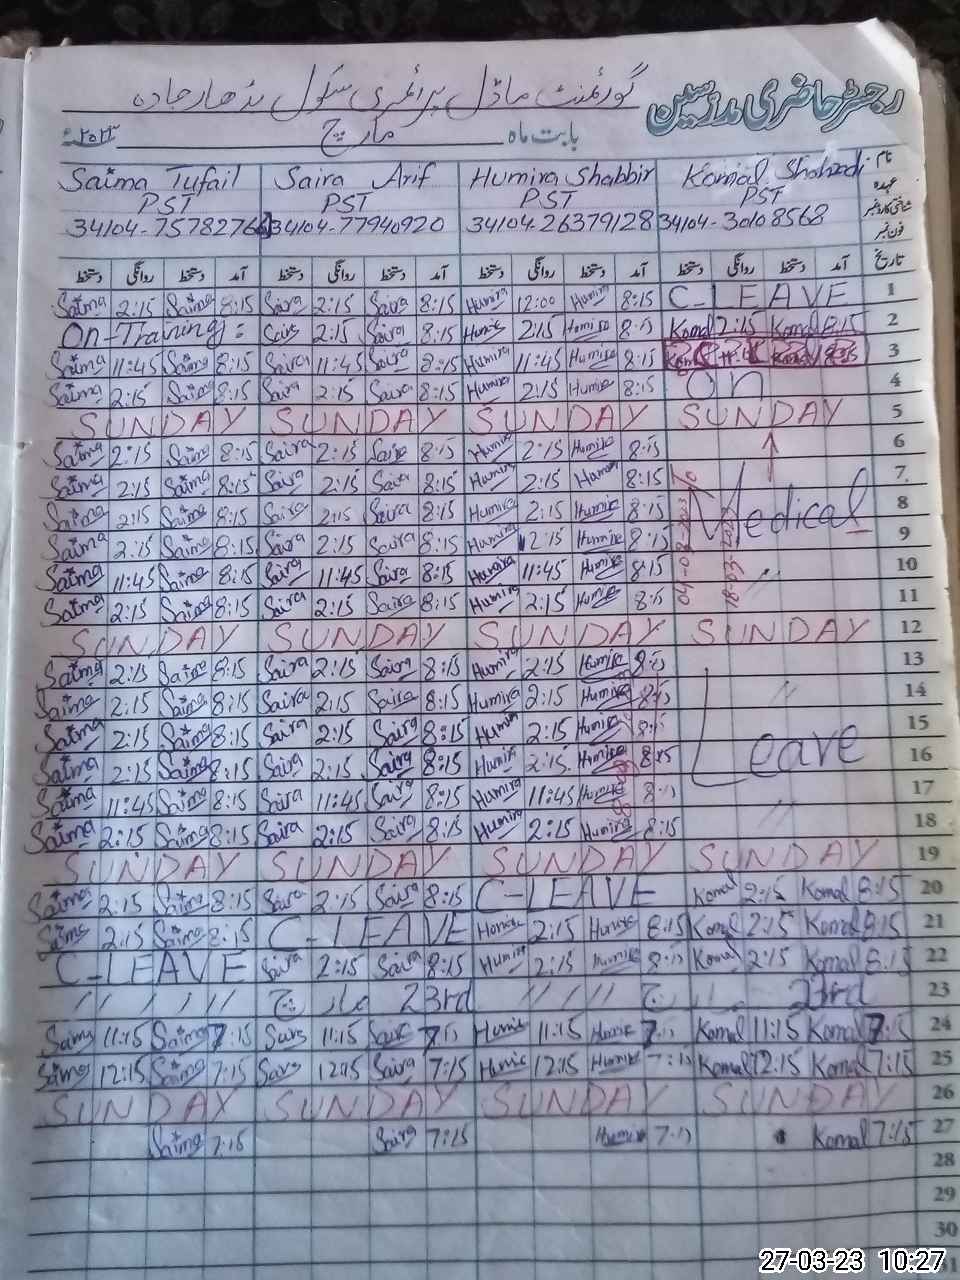 رجسٹر حاضری مدرسین گورنمنٹ ماڈل پرائمری سکول
بابت ماہ مارچ ۲۰۲۳ء
نام Saima Tufail Saira Arif Humira Shabbir Komal Shahzadi
عہدہ PST PST PST PST
شناختی کارڈ نمبر
فون نمبر 34104-77940920 34104-26379128 34104-30108568
تاریخ آمد دستخط روانگی دستخط آمد دستخط روانگی دستخط آمد دستخط روانگی دستخط آمد دستخط روانگی دستخط
Saima 2:15 Saima 8:15 Saira 2:15 Saira 8:15 Humira 12:00 Humira 8:15 C-LEAVE 1
On-Traning: Saira 2:15 Saira 8:15 Humira 2:15 Humira 8:15 Komal 2:15 Komal 8:15 2
Saima 11:45 Saima 8:15 Saira 11:45 Saira 8:15 Humira 11:45 Humira 8:15 3
Saima 2:15 Saima 8:15 Saira 2:15 Saira 8:15 Humira 2:15 Humira 8:15 on 4
SUNDAY SUNDAY SUNDAY SUNDAY 5
Saima 2:15 Saima 8:15 Saira 2:15 Saira 8:15 Humira 2:15 Humira 8:15 6
Saima 2:15 Saima 8:15 Saira 2:15 Saira 8:15 Humira 2:15 Humira 8:15 7
Saima 2:15 Saima 8:15 Saira 2:15 Saira 8:15 Humira 2:15 Humira 8:15 Medical 8
Saima 2:15 Saima 8:15 Saira 2:15 Saira 8:15 Humira 2:15 Humira 8:15 9
Saima 11:45 Saima 8:15 Saira 11:45 Saira 8:15 Humira 11:45 Humira 8:15 〃 10
Saima 2:15 Saima 8:15 Saira 2:15 Saira 8:15 Humira 2:15 Humira 8:15 11
04-03-2023 To
18-03-2023
SUNDAY SUNDAY SUNDAY SUNDAY 12
Saima 2:15 Saima 8:15 Saira 2:15 Saira 8:15 Humira 2:15 Humira 8:15 13
Saima 2:15 Saima 8:15 Saira 2:15 Saira 8:15 Humira 2:15 Humira 8:15 〃 14
Saima 2:15 Saima 8:15 Saira 2:15 Saira 8:15 Humira 2:15 Humira 8:15 15
Saima 2:15 Saima 8:15 Saira 2:15 Saira 8:15 Humira 2:15 Humira 8:15 Leave 16
Saima 11:45 Saima 8:15 Saira 11:45 Saira 8:15 Humira 11:45 Humira 8:15 17
Saima 2:15 Saima 8:15 Saira 2:15 Saira 8:15 Humira 2:15 Humira 8:15 〃 18
SUNDAY SUNDAY SUNDAY SUNDAY 19
Saima 2:15 Saima 8:15 Saira 2:15 Saira 8:15 C-LEAVE Komal 2:15 Komal 8:15 20
Saima 2:15 Saima 8:15 C-LEAVE Humira 2:15 Humira 8:15 Komal 2:15 Komal 8:15 21
C-LEAVE Saira 2:15 Saira 8:15 Humira 2:15 Humira 8:15 Komal 2:15 Komal 8:15 22
〃 〃 23rd مارچ 〃 〃 23rd مارچ 23
Saima 11:15 Saima 7:15 Saira 11:15 Saira 7:15 Humira 11:15 Humira 7:15 Komal 11:15 Komal 7:15 24
Saima 12:15 Saima 7:15 Saira 12:15 Saira 7:15 Humira 12:15 Humira 7:15 Komal 12:15 Komal 7:15 25
SUNDAY SUNDAY SUNDAY SUNDAY 26
Saima 7:15 Saira 7:15 Humira 7:15 Komal 7:15 27
28
29
30
27-03-23 10:27